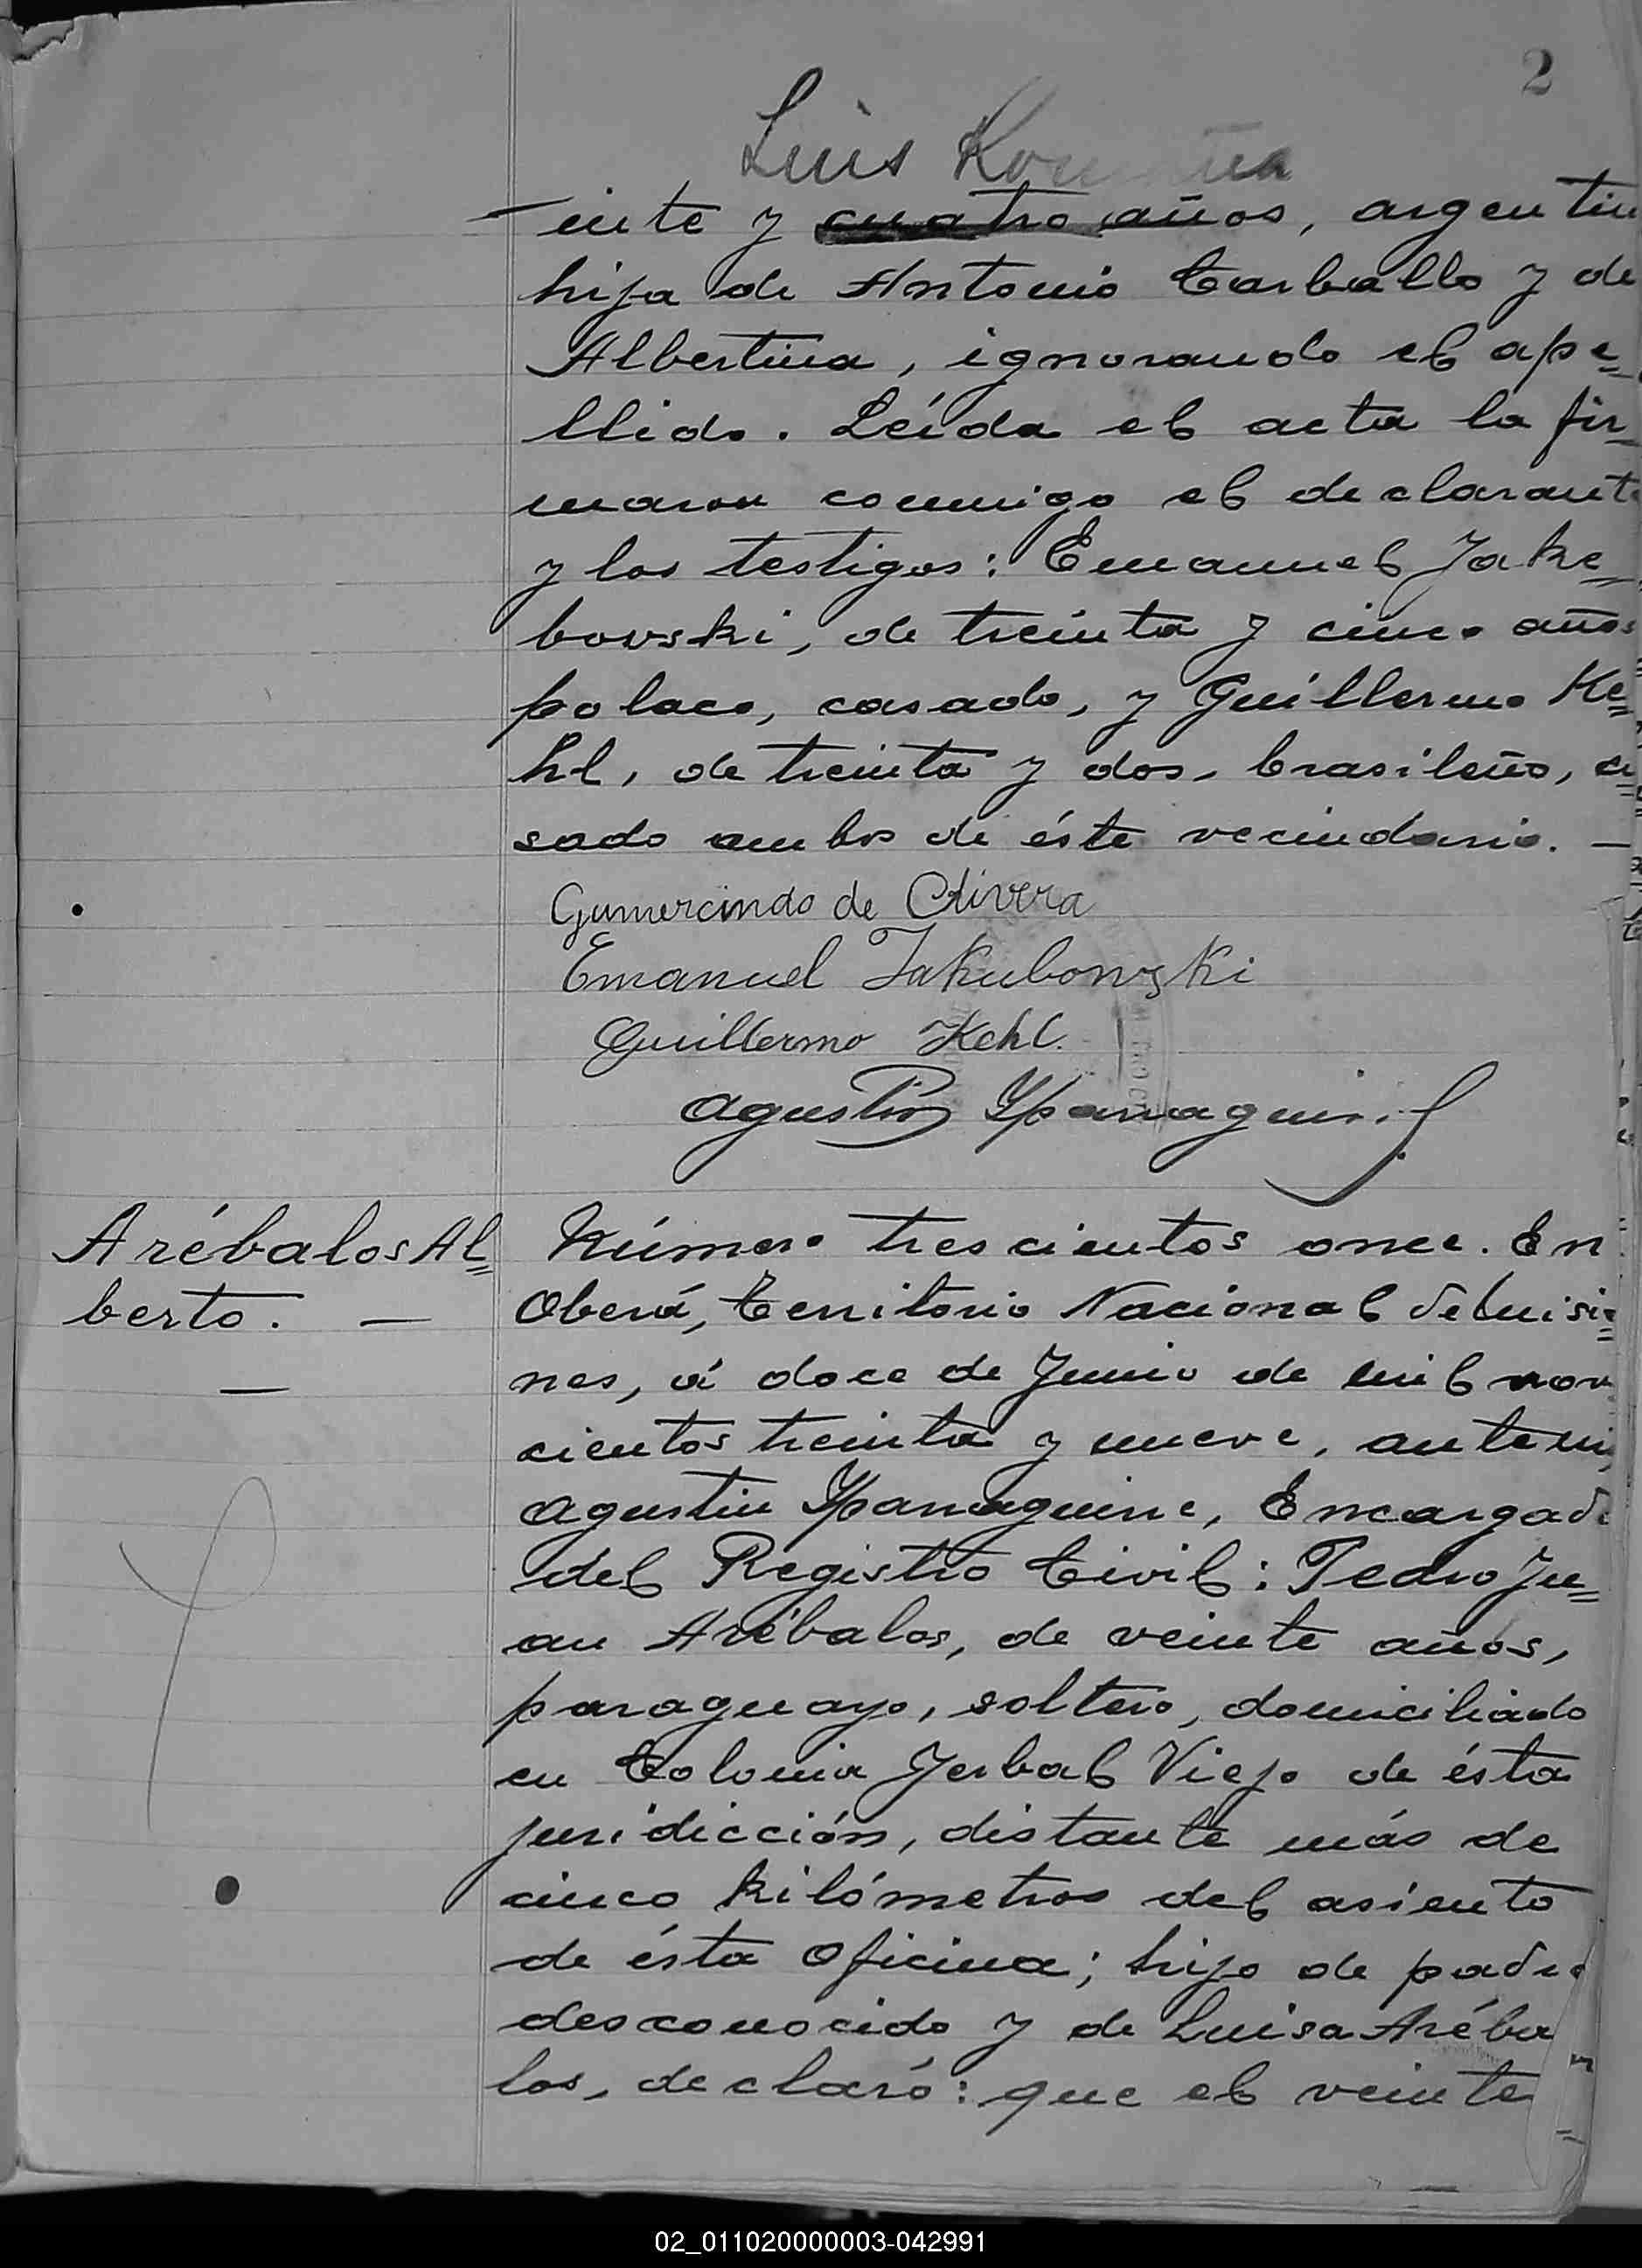 2
Luis
inte y cuatro años, argentin
hija de Antonio Carballo y de
Albertina, ignorando el ape=
llido. Leída el acta la fir_
maron conmigo el declarant
y los testigos: Emanuel Jake_
bovski, de treinta y cinco años
polaco, casado, y Guillermo Ke=
hl, de treinta y dos, brasileño, ca
sado ambos de éste vecindario. —
Gumercindo de Olivera
Emanuel Jakubowski
Guillermo Kehl.
Agustin Yparraguirre
Arébalos Al= Número trescientos once. En
berto. — Oberá, Territorio Nacional de Misio=
nes, á doce de Junio de mil nove
cientos treinta y nueve, ante mi,
Agustin Yparraguirre, Encargado
del Registro Civil: Pedro Ju=
an Arébalos, de veinte años,
paraguayo, soltero, domiciliado
en Colonia Yerbal Viejo de ésta
juridicción, distante más de
cinco kilómetros del asiento
de ésta Oficina; hijo de padre
desconocido y de Luisa Aréba
los, declaró: que el veinte
02_011020000003-042991